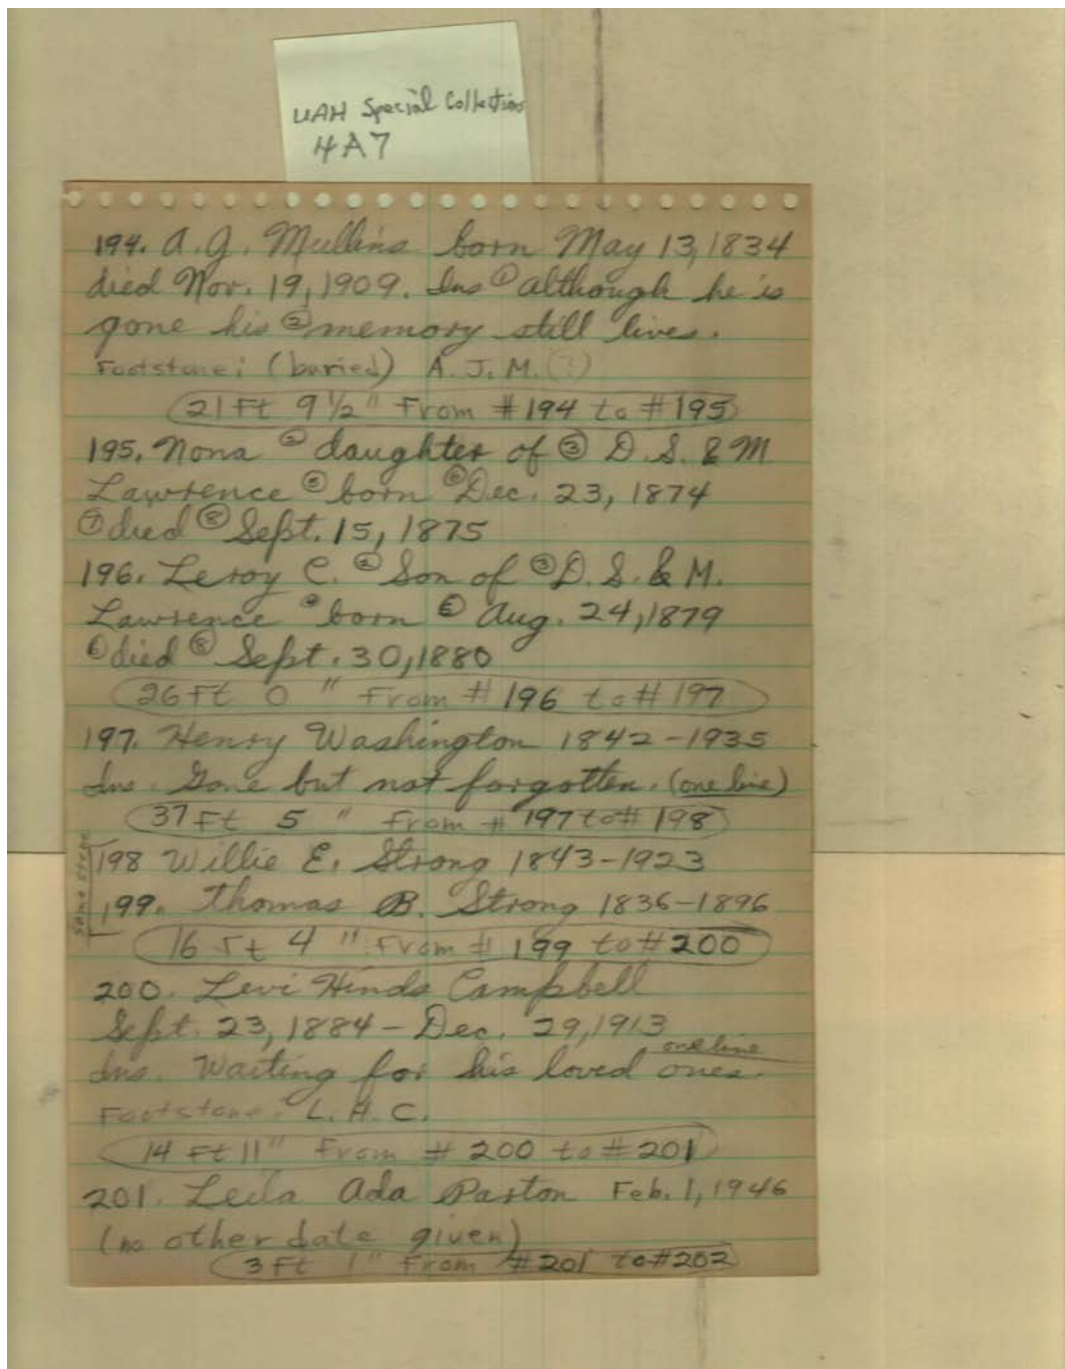 UAH Special Collections
4A7
194. A.G. Mullins born May 13, 1834
died Nov. 19, 1909. Ins ① although he is
gone his ② memory still lives.
Footstone: (buried) A. J. M. (?)
21 Ft 9 1/2" From #194 to #195
195. Nona ② daughter of ③ D. S. & M
Lawrence ⑤ born ⑥ Dec. 23, 1874
⑦ died ⑧ Sept. 15, 1875
196. Leroy C. ② Son of ③ D. S. & M.
Lawrence ④ born ⑤ Aug. 24, 1879
⑥ died ⑧ Sept. 30, 1880
26 Ft 0 " From # 196 to # 197
197. Henry Washington 1842-1935
Ins. Gone but not forgotten. (one line)
37 Ft 5 " From # 197 to # 198
same stone
198 Willie E. Strong 1843-1923
199. Thomas B. Strong 1836-1896
16 Ft 4 " From # 199 to # 200
200. Levi Hinds Campbell
Sept. 23, 1884 - Dec. 29, 1913
one line
Ins. Waiting for his loved ones.
Footstone: L. H. C.
14 Ft 11" From # 200 to # 201
201. Leila Ada Paston Feb. 1, 1946
(no other date given)
3 Ft 1" From #201 to #202